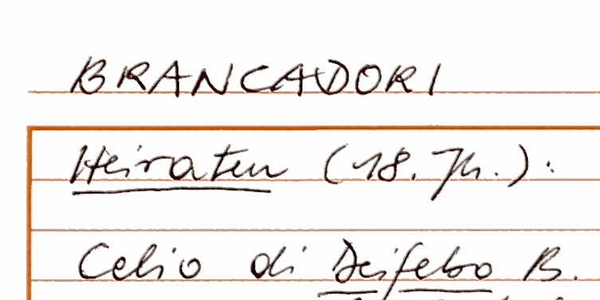 BRANCADORI
Heiraten (18. Jh.):
Celio di Deifebo B.